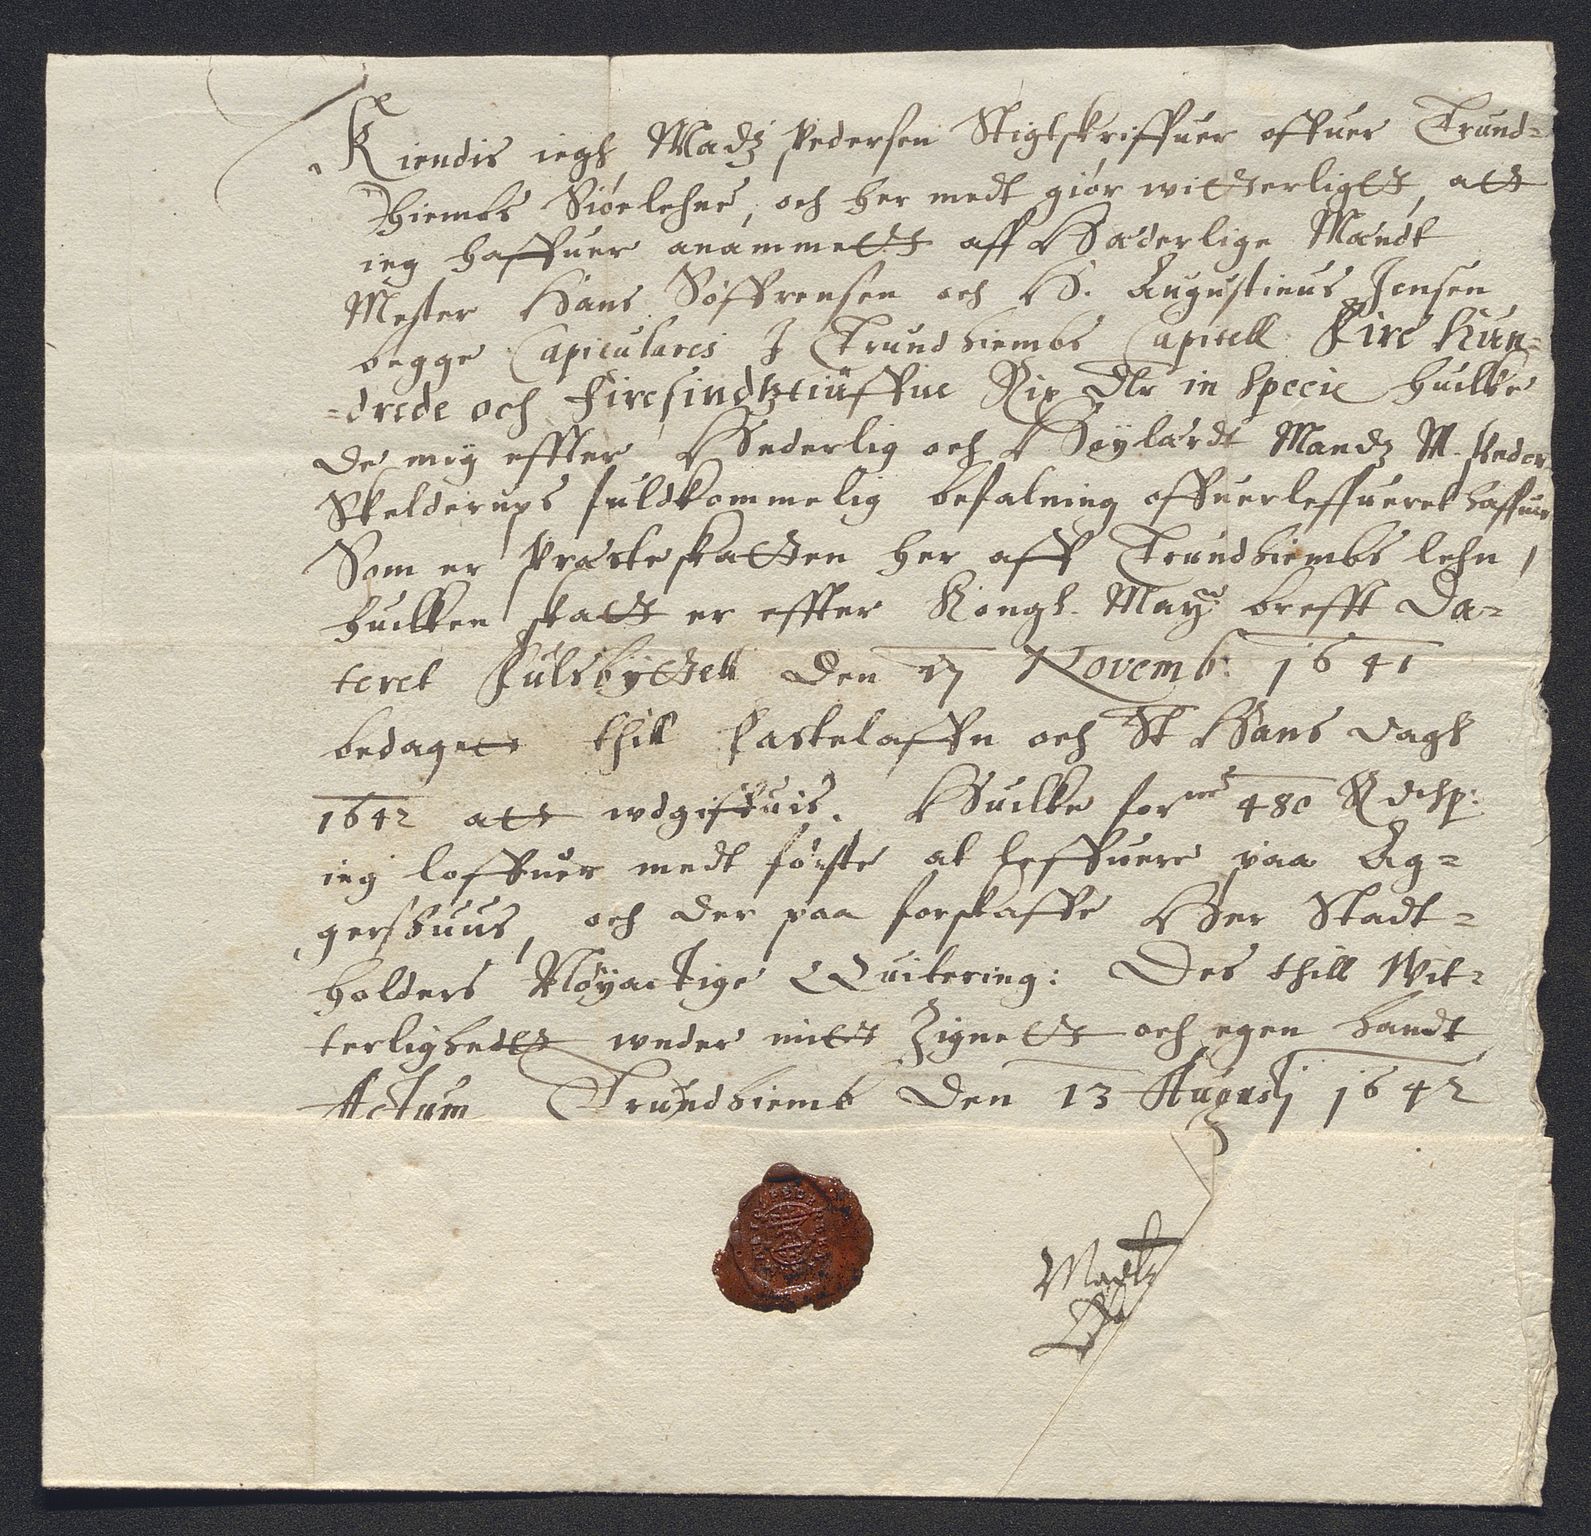 Kiendis iegh Madz Pedersen Stigtskriffuer offuer Trund-
hiembs Siøelehne, och her medt giør witterligtt, att
ieg haffuer anammett aff Hæderlige Mændt
Mester Hans Søffrensen och H. Augustinus Jensen
begge Capitulares J Trundhiembs Capitell Fire Hun-
-drede och Firesindtztiuffue Rix Dlr in specie huilke
de mig effter Hederlig och Høylærdt Mandz M. Peder
Skelderups fuldkommelig befalning offuerleffueret haffuer
Som er Præsteskatten her aff Trundhiembs lehn,
huilken skatt er effter Kongl. Mayts breff Da-
teret Julsbyttell den 17 Novemb: 1641
bedaget thill Fastelaffn och St Hans dagh
1642 att wdgiffuis. Huilke forne 480 Rdsp:
ieg loffuer medt første at leffuere paa Ag-
gershuus, och der paa forskaffe Her Stadt-
holders Nøyactige Quitering: Des thill Wit-
terlighedt wnder mitt Zignett och egen handt
Actum Trundhiemb den 13 Augustj 1642
Madtz